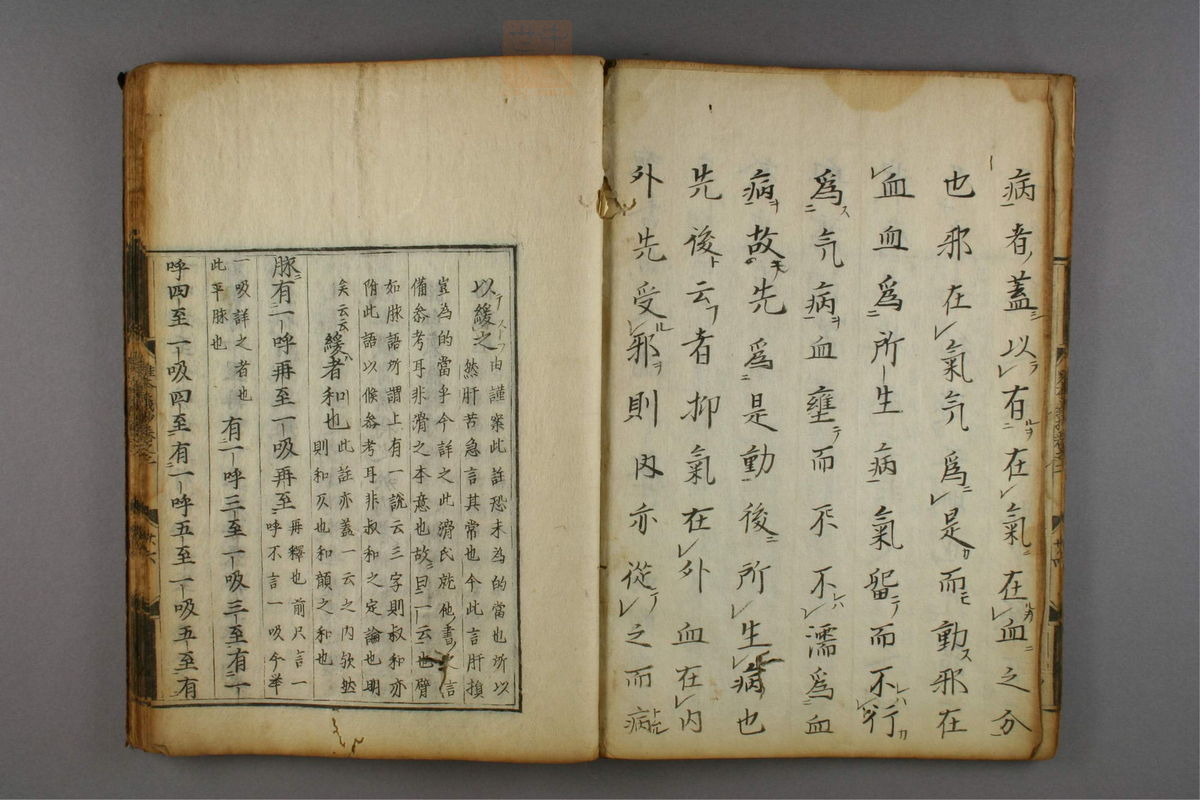 病者蓋以有在氣在血之分
也邪在氣气爲是而動邪在
血血爲所生病氣留而不行
爲气病血壅而不不濡爲血
病故先爲是動後所生病也
先後云者抑氣在外血在内
外先受邪則内亦從之而病
以緩之由謹案此註恐未為的當也所以
然肝苦急言其常也今此言肝損
豈為的當乎今詳之此滑氏就他書信
備參考耳非滑之本意也故曰一云也臂
如脉語所謂上有一說云三字則叔和亦
附此語以候參考耳非叔和之定論也明
矣云云緩者和也此註亦蓋一云之内欤然
則和仄也和顏之和也
脉有一呼再至一吸再至再釋也前只言一
呼不言一吸今舉
一吸詳之者也
此平脉也
有一呼三至一吸三至有一
呼四至一吸四至有一呼五至一吸五至有